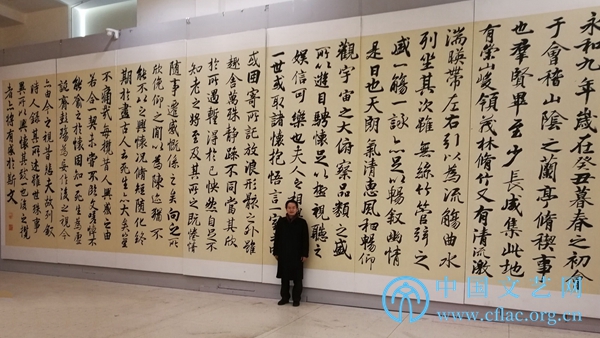 永和九年歲在癸丑暮春之初會
于會稽山陰之蘭亭脩稧事
也羣賢畢至少長咸集此地
有崇山峻領茂林脩竹又有清流激
湍暎帶左右引以為流觴曲水
列坐其次雖無絲竹管弦之
盛一觴一詠亦足以暢叙幽情
是日也天朗氣清惠風和暢仰
觀宇宙之大俯察品類之盛
所以遊目騁懷足以極視聽之
娛信可樂也夫人之相
一世或取諸懷抱悟言一室之
或因寄所託放浪形骸之外雖
趣舍萬殊靜躁不同當其欣
於所遇暫得於己怏然自足不
知老之將至及其所之既惓情
隨事遷感慨係之矣向之所
欣俛仰之間以為陳迹猶不
能不以之興懷况脩短隨化終
期於盡古人云死生亦大矣豈
不痛哉每攬昔人興感之由
若合一契未嘗不臨文嗟悼不
能喻之於懷固知一死生為虛
誕齊彭殤為妄作後之視今
亦由今之視昔悲夫故列叙
時人錄其所述雖世殊事
異所以興懷其致一也後之攬
者亦將有感於斯文
中国文艺网
www.cflac.org.cn